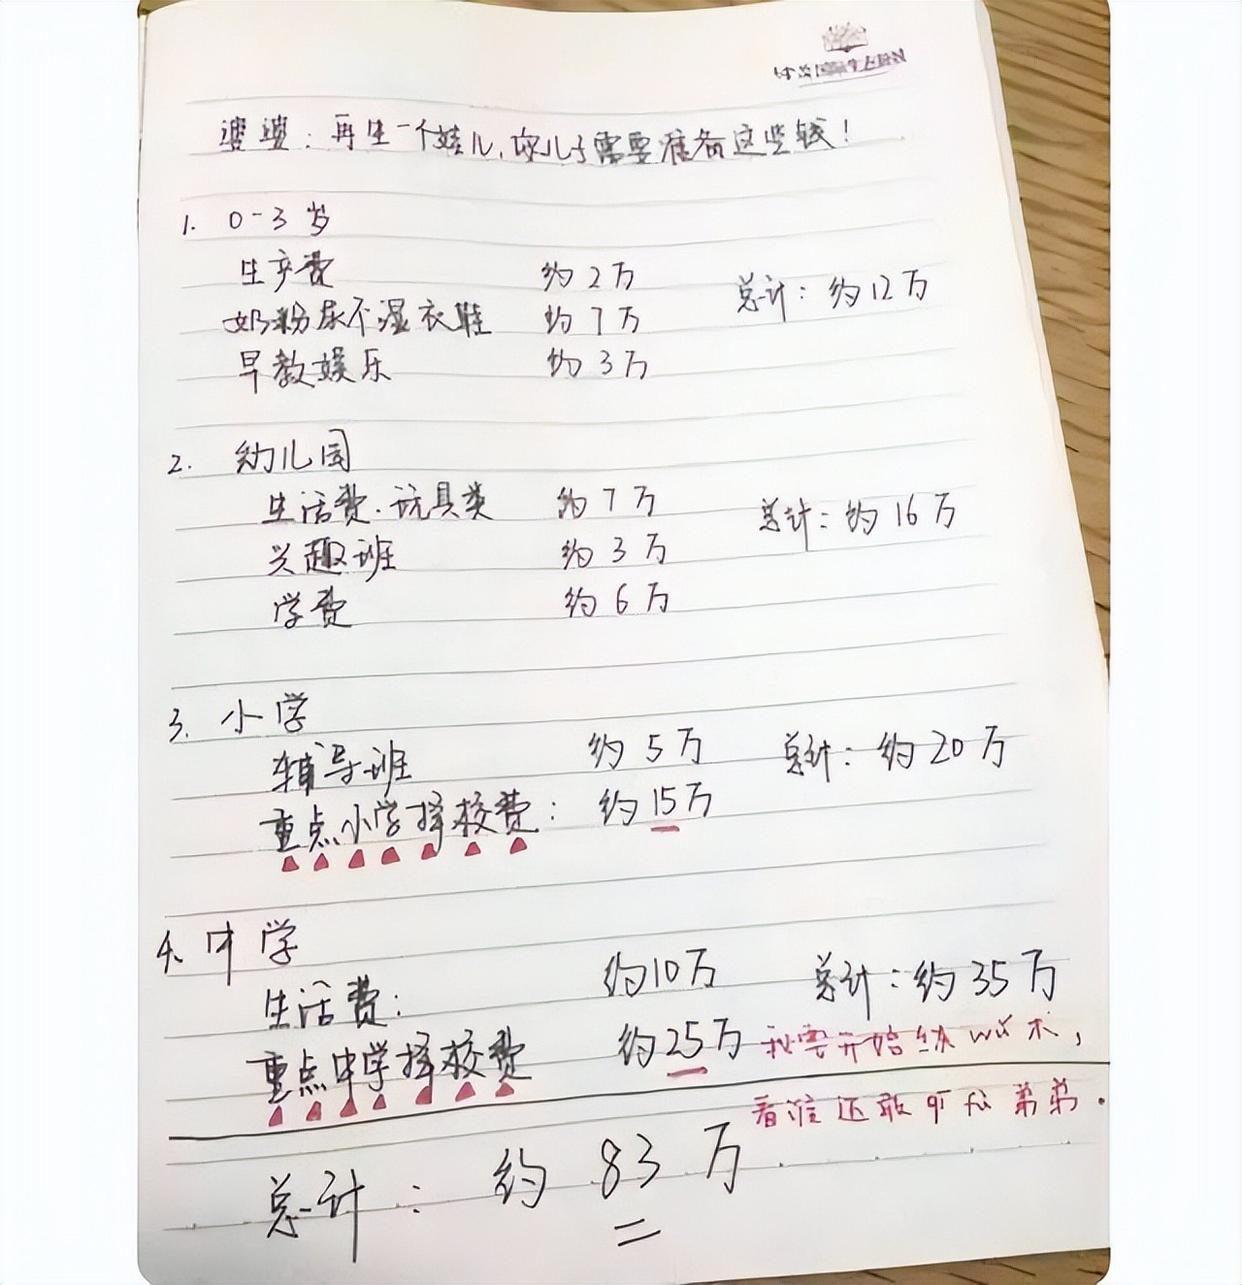 婆婆：再生一个娃儿，您儿子需要准备这些钱！
1. 0-3岁
生产费 约2万 总计：约12万
奶粉尿不湿衣鞋 约7万
早教娱乐 约3万
2. 幼儿园
生活费.玩具类 约7万 总计：约16万
兴趣班 约3万
学费 约6万
3. 小学
辅导班 约5万 总计：约20万
重点小学择校费： 约15万
4. 中学
生活费： 约10万 总计：约35万
重点中学择校费 约25万 我要开始练wu术，
看谁还敢欺负弟弟.
总计： 约83万